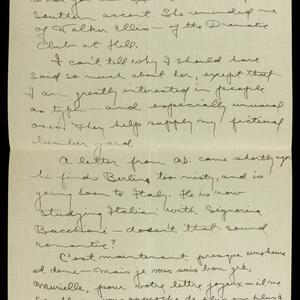 Southern accent. She reminded me
of Walker Ellis — of the Dramatic
Club at Hill.
I can't tell why I should have
said so much about her, except that
I am greatly interested in people
as types — and especially unusual
ones. They help supply my fictional
lumber yard.
A letter from Ab. came shortly ago
he finds Berlin too misty, and is
going soon to Italy. He is now
studying Italian, with Signorina
Bacchiani — doesn't that sound
romantic?
C'est maintenant presque une heure
et demi — Mais je vous sais bon gré,
Murielle, pour votre lettre joyeux — il me